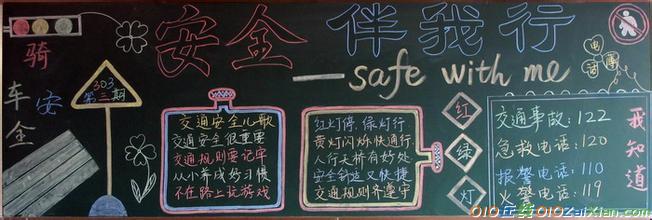 安全 伴我行
—safe with me
骑车安全
303
第三期
交通安全儿歌
交通安全很重要
交通规则要记牢
从小养成好习惯
不在路上玩游戏
红灯停,绿灯行
黄灯闪烁快通行
人行天桥有好处
安全舒适又快捷
交通规则齐遵守
红
绿
灯
电话
交通事故:122
急救电话:120
报警电话:110
火警电话:119
我知道
010在线010ZaiXian.com